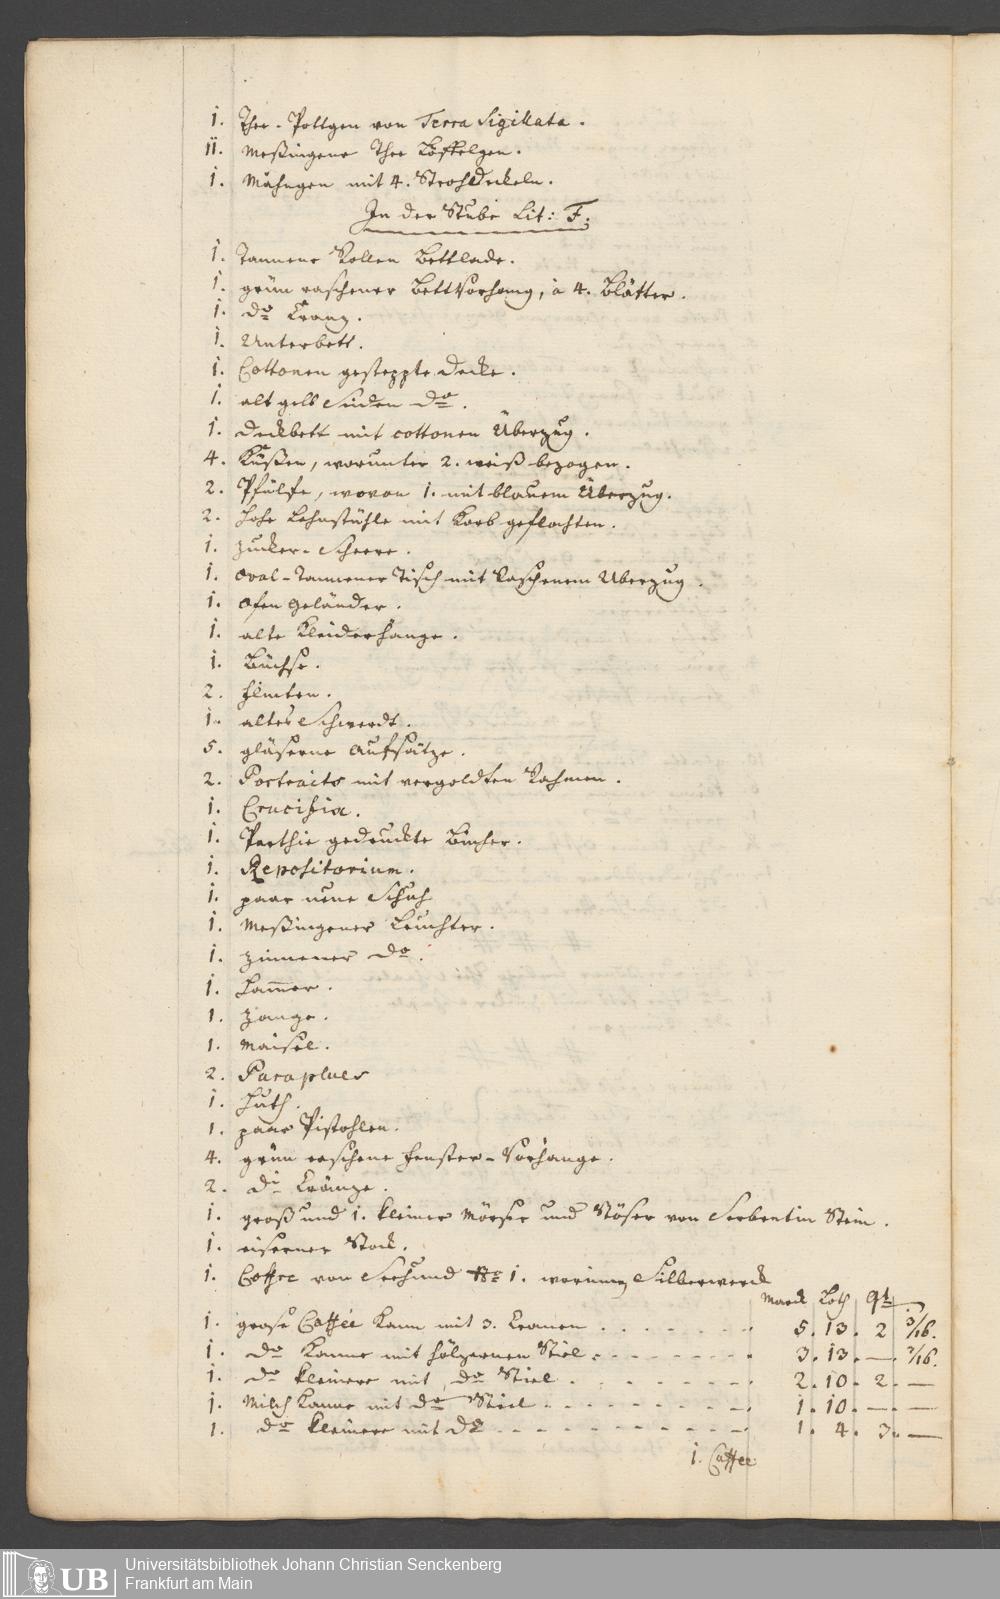 1. Thee-Pottgen von Terra Sigillata.
11. Meßingene Thee Löffelgen.
1. Mähngen mit 4. Strohdeckeln.
In der Stube Lit: F.
1. Tannene Rollen Bettlade.
1. grün raschener Bettvorhang, à 4. Blätter.
1. do Cranz.
1. Unterbett.
1. Cottonen gesteppte Decke.
1. alt gelb Seiden do.
1. Deckbett mit cottonen Überzug.
4. Küßen, worunter 2. weiß bezogen.
2. Pfülfe, wovon 1. mit blauem Überzug.
2. Hohe Lehnstühle mit Korb geflochten.
1. Zucker-Scheere.
1. oval-Tannener Tisch mit Raschenem Uberzug.
1. Ofen Geländer.
1. alte Kleiderhänge.
1. Büchse.
2. Flinten.
1. altes Schwerdt.
5. gläserne Aufsätze.
2. Portraits mit vergoldten Rahmen.
1. Crucifix.
1. Parthie gedruckte Bücher.
1. Repositorium.
1. paar neue Schuh
1. Meßingener Leuchter.
1. zinnener do.
1. Hammer.
1. Zange.
1. Maisel.
2. Paraplues
1. Huth.
1. paar Pistohlen.
4. grün raschene Fenster-Vorhänge.
2. do Cränze.
1. groß und 1. kleiner Mörser und Stöser von Serbentin Stein.
1. eiserner Stock.
1. Coffre von Seehund No 1. worinnen Silberwerck
Marck Loth Qt
1. grose Caffée Kann mit 3. Cranen . . . . . . . 5. 13. 2 3/16.
1. do Kanne mit hölzernen Stiel . - - - - - - 3. 13. —. 2/16.
1. do kleinere mit do Stiel . - - - - - - 2. 10. 2. —
1. Milch Kanne mit do Stiel - - - - - - - 1. 10. —. —
1. do kleinere mit do - - - - - - - - 1. 4. 3. —
1. Caffee
UB
Universitätsbibliothek Johann Christian Senckenberg
Frankfurt am Main